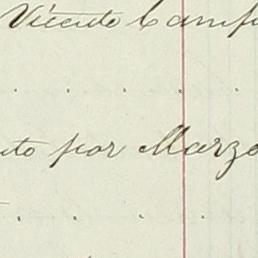 Vicente Camp
nto por Marzo